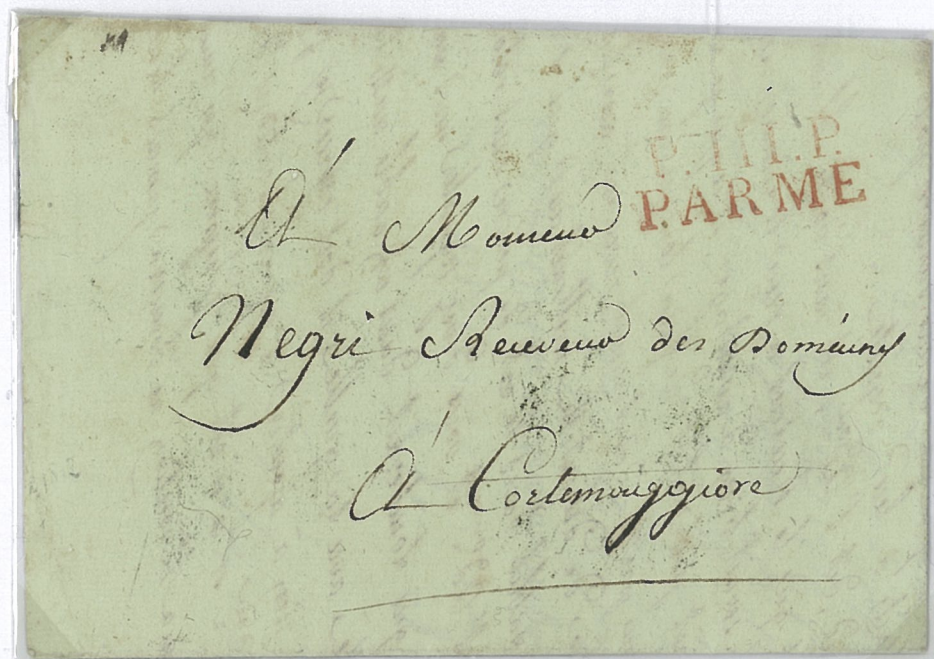 P.111.P.
PARME
À Monsieur
Negri Receveur des Domaines
À Cortemaggiore